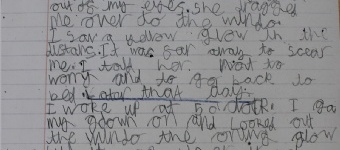 out of my eyes. she dragged
me over to the window.
I saw a yellow glow in the
distans. It was far away to scear
me. I told her not to
worry and to go back to
bed. Later that day.
I woke up at I
my gown on and Looked out
the windo the oring glow